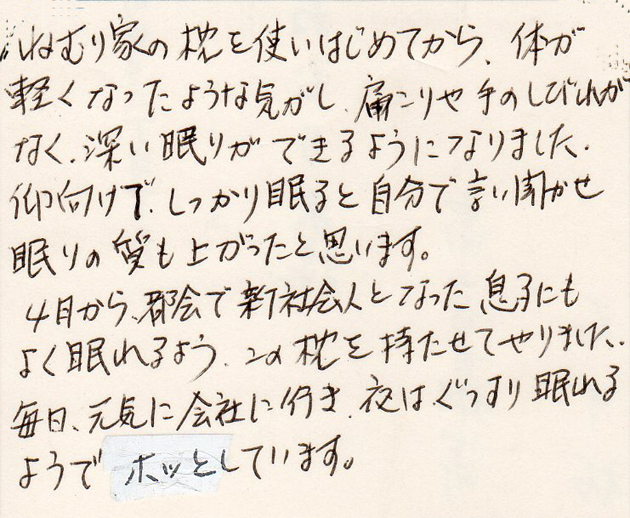 ねむり家の枕を使いはじめてから、体が
軽くなったような気がし、肩こりや手のしびれが
なく、深い眠りができるようになりました。
仰向けで、しっかり眠ると自分で言い聞かせ
眠りの質も上がったと思います。
4月から、都会で新社会人となった息子にも
よく眠れるよう、この枕を持たせてやりました。
毎日、元気に会社に行き、夜はぐっすり眠れる
ようでホッとしています。